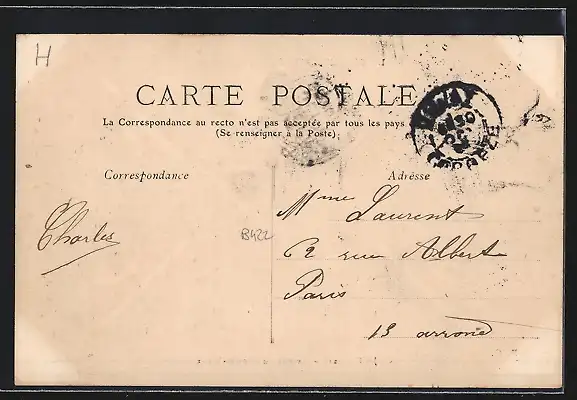 H
CARTE POSTALE
La Correspondance au recto n'est pas acceptée par tous les pays
(Se renseigner à la Poste)
Correspondance
Adrèsse
Charles
B422
Mme Laurent
2 rue Albert
Paris
13 arrond